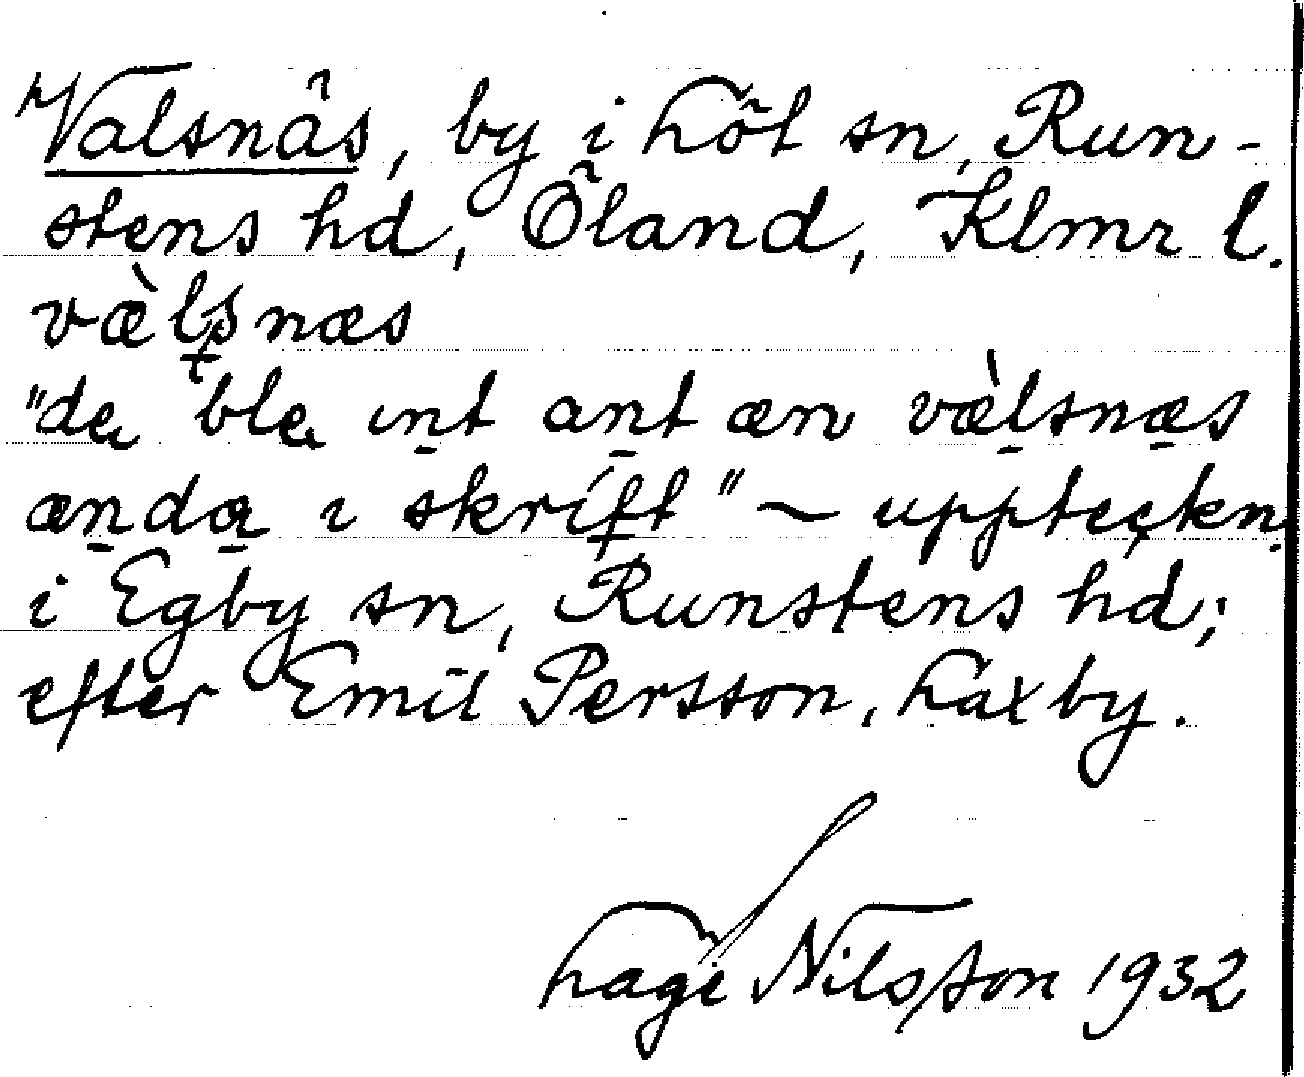 Valsnäs, by i Löt sn, Run-
stens hd, Öland, Klmr l.
væ̀lsnæs
"dea blea ınt ant æn væ̀lsnæs
ænda ı skrift" ~ uppteckn.
i Egby sn, Runstens hd;
efter Emil Persson, Laxby.
Lage Nilsson 1932